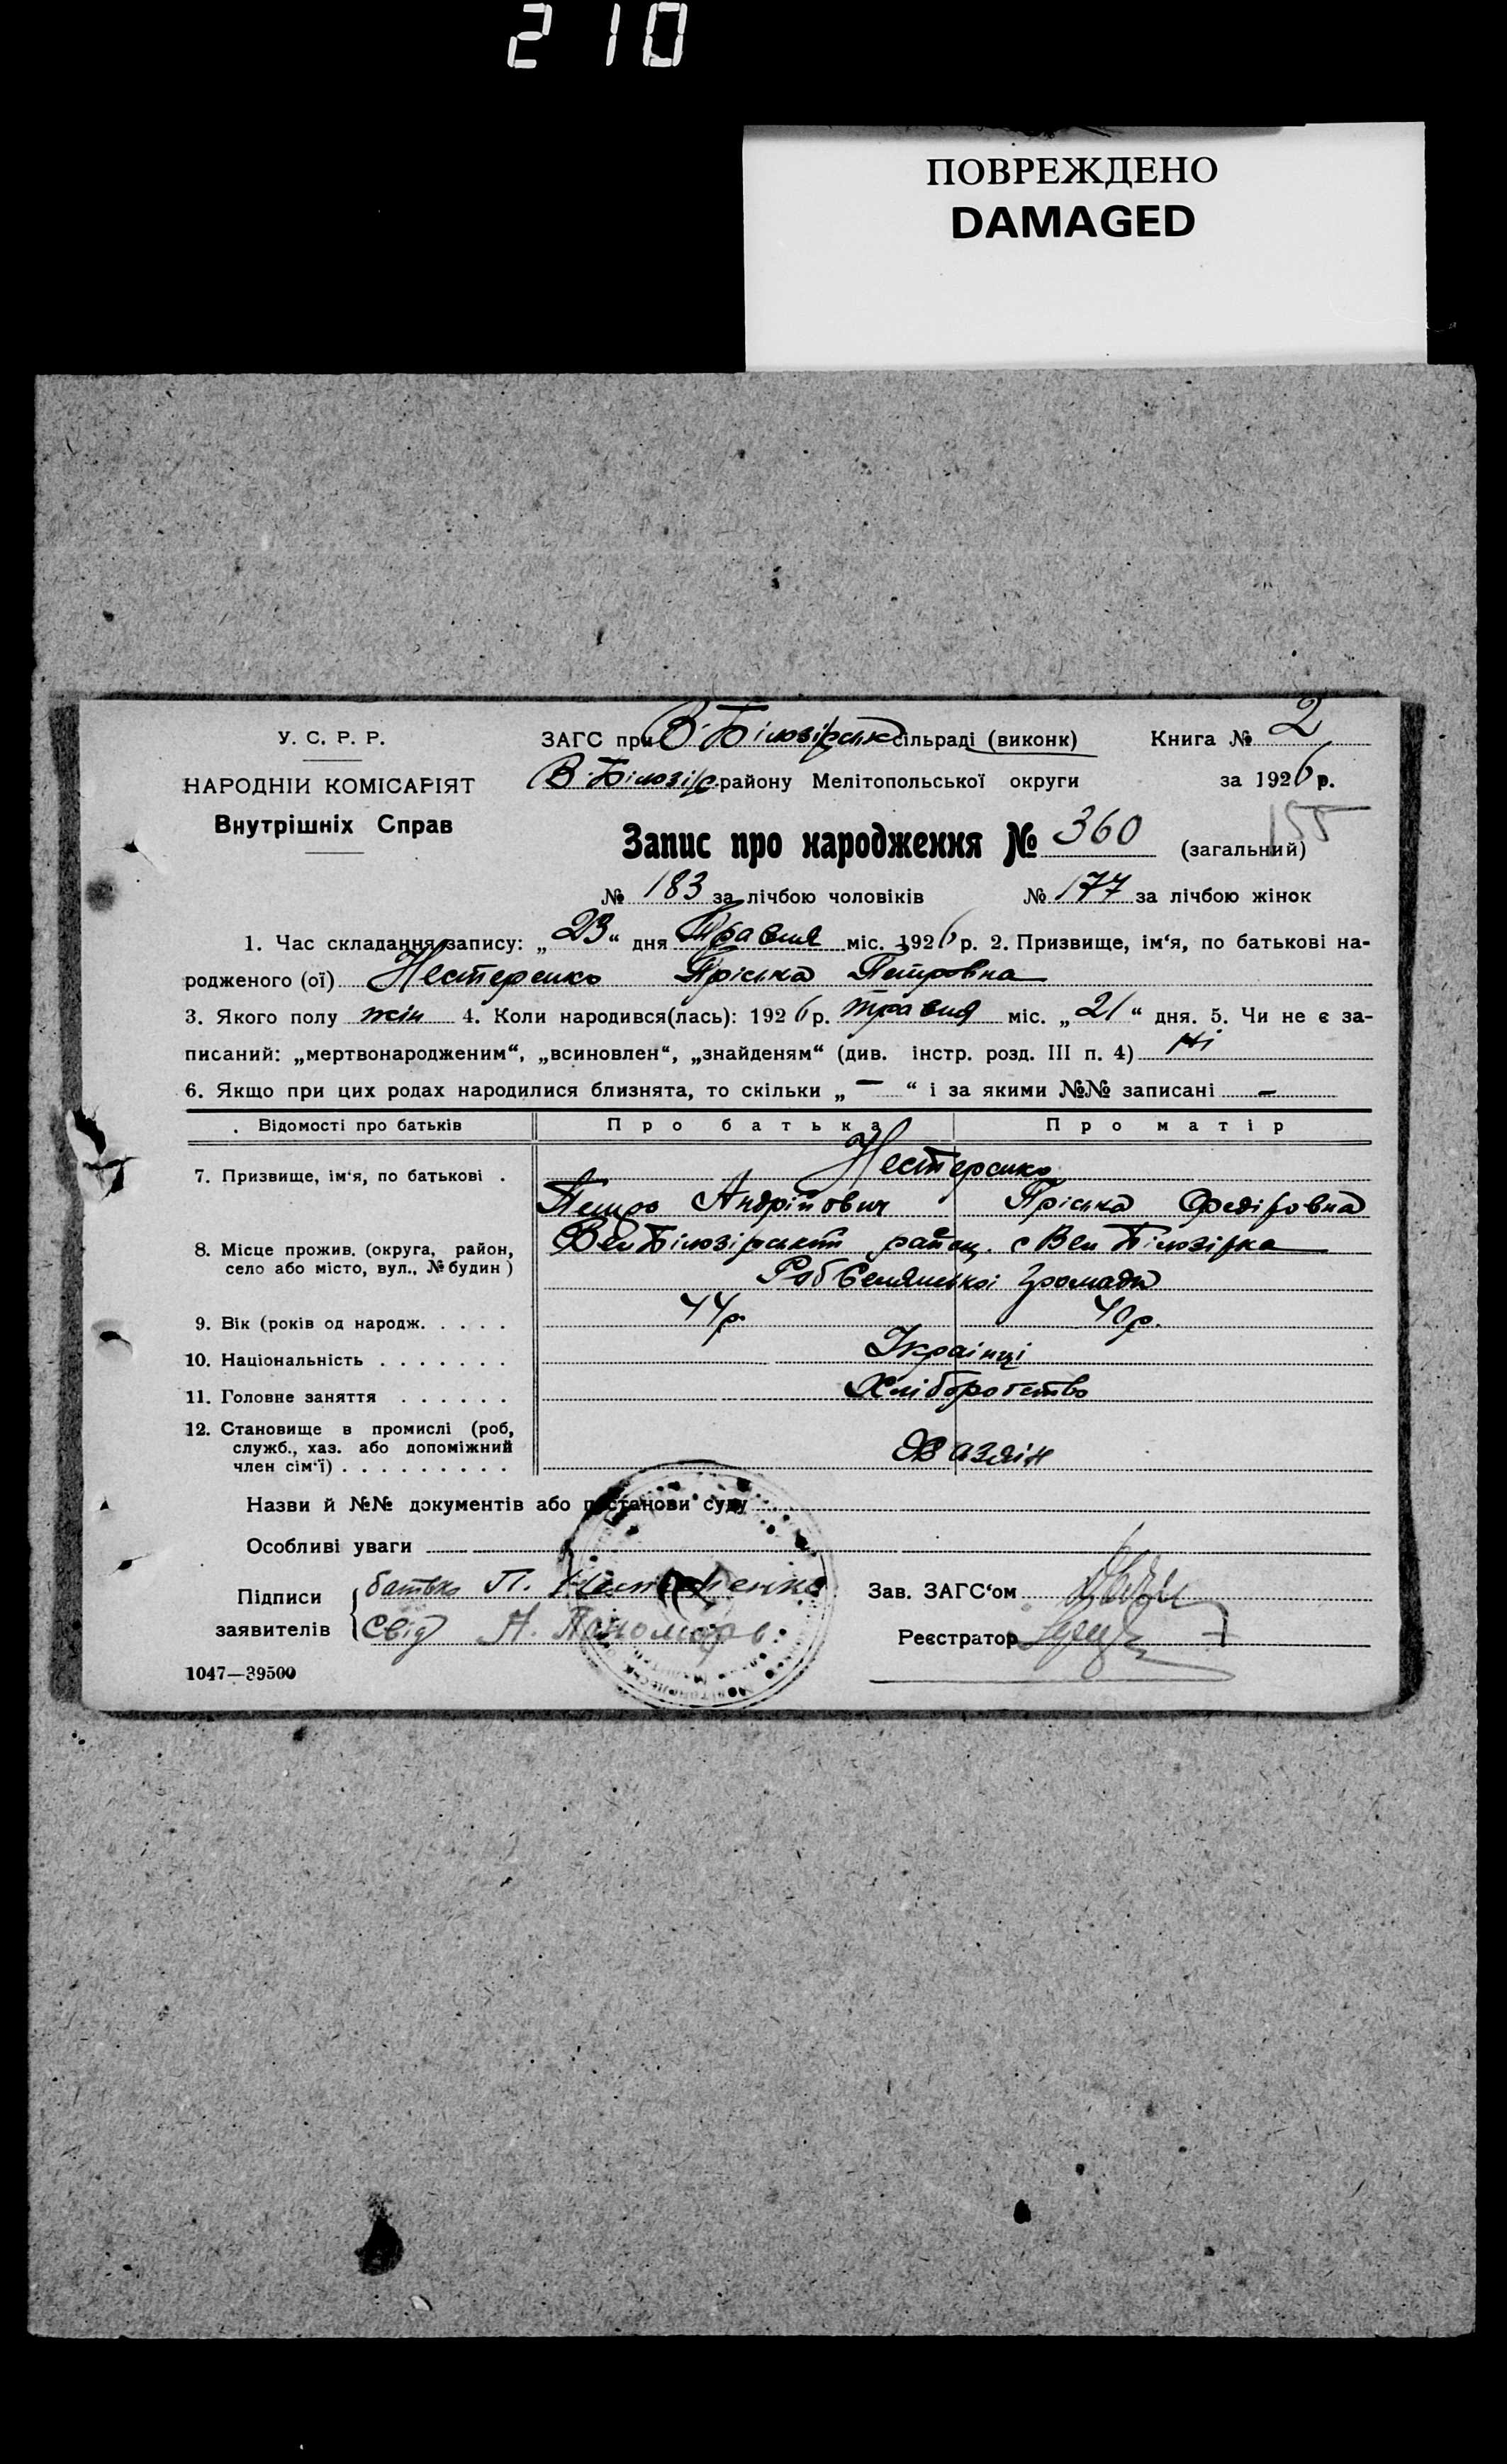 210
ПОВРЕЖДЕНО
DAMAGED
У. С. Р. Р.
НАРОДНІЙ КОМІСАРІЯТ
Внутрішніх Справ
ЗАГС при В-Білозірськ сільраді (виконк) Книга № 2
В-Білозір. району Мелітопольської округи за 1926 р.
155
Запис про народження № 360 (загальний)
№ 183 за лічбою чоловіків № 177 за лічбою жінок
1. Час складання запису: „23“ дня Травня міс. 1926 р. 2. Призвище, ім‘я, по батькові на-
родженого (ої) Нестеренко Пріська Петровна
3. Якого полу жін 4. Коли народився(лась): 1926 р. травня міс. „21“ дня. 5. Чи не є за-
писаний: „мертвонародженим“, „всиновлен“, „знайденям“ (див. інстр. розд. III п. 4) Ні
6. Якщо при цих родах народилися близнята, то скільки „—“ і за якими №№ записані —
Відомості про батьків Про батька Про матір
7. Призвище, ім‘я, по батькові . Нестеренко
Петро Андрійович Пріська Федіровна
8. Місце прожив. (округа, район, село або місто, вул., № будин) Вел Білозірський район. с Вел Білозірка
Селянської громади
9. Вік (років од народж. . . . . 44р. 40р.
10. Національність . . . . . . . Українці
11. Головне заняття . . . . . . Хліборобство
12. Становище в промислі (роб,
служб., хаз. або допоміжний
член сім‘ї) . . . . . . . . . Хазяін
Назви й №№ документів або постанови суду
Особливі уваги
Підписи
заявителів
батько П. Нестеренко
Свід А. Пономарь
Зав. ЗАГС‘ом
Реєстратор
1047—39500